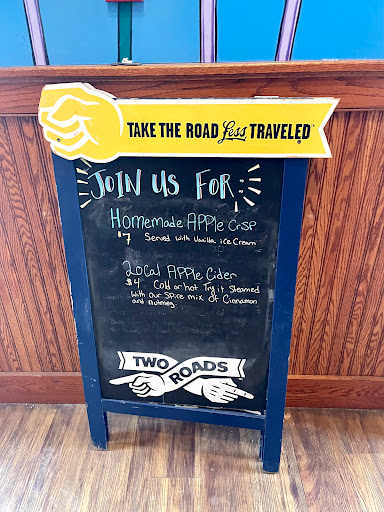 TAKE THE ROAD Less TRAVELED
JOIN US FOR
Homemade APPle Crisp
$7 Served with Vanilla ice Cream
Local APPle Cider
$4 Cold or hot Try it steamed
with our Spice mix of Cinnamon
and nutmeg
TWO ROADS